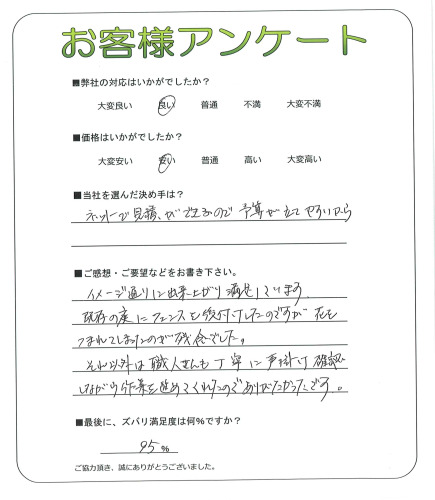 お客様アンケート
■弊社の対応はいかがでしたか？
大変良い 良い 普通 不満 大変不満
■価格はいかがでしたか？
大変安い 安い 普通 高い 大変高い
■当社を選んだ決め手は？
ネットで見積りができるので 予算が立てやすいから
■ご感想・ご要望などをお書き下さい。
イメージ通りに出来上がり満足しています。
既存の塀にフェンスを後付けしたのですが 花を
つまれてしまったのが残念でした。
それ以外は職人さんも丁寧に声掛け確認
しながら作業を進めてくれたのでありがたかったです。
■最後に、ズバリ満足度は何％ですか？
95 %
ご協力頂き、誠にありがとうございました。